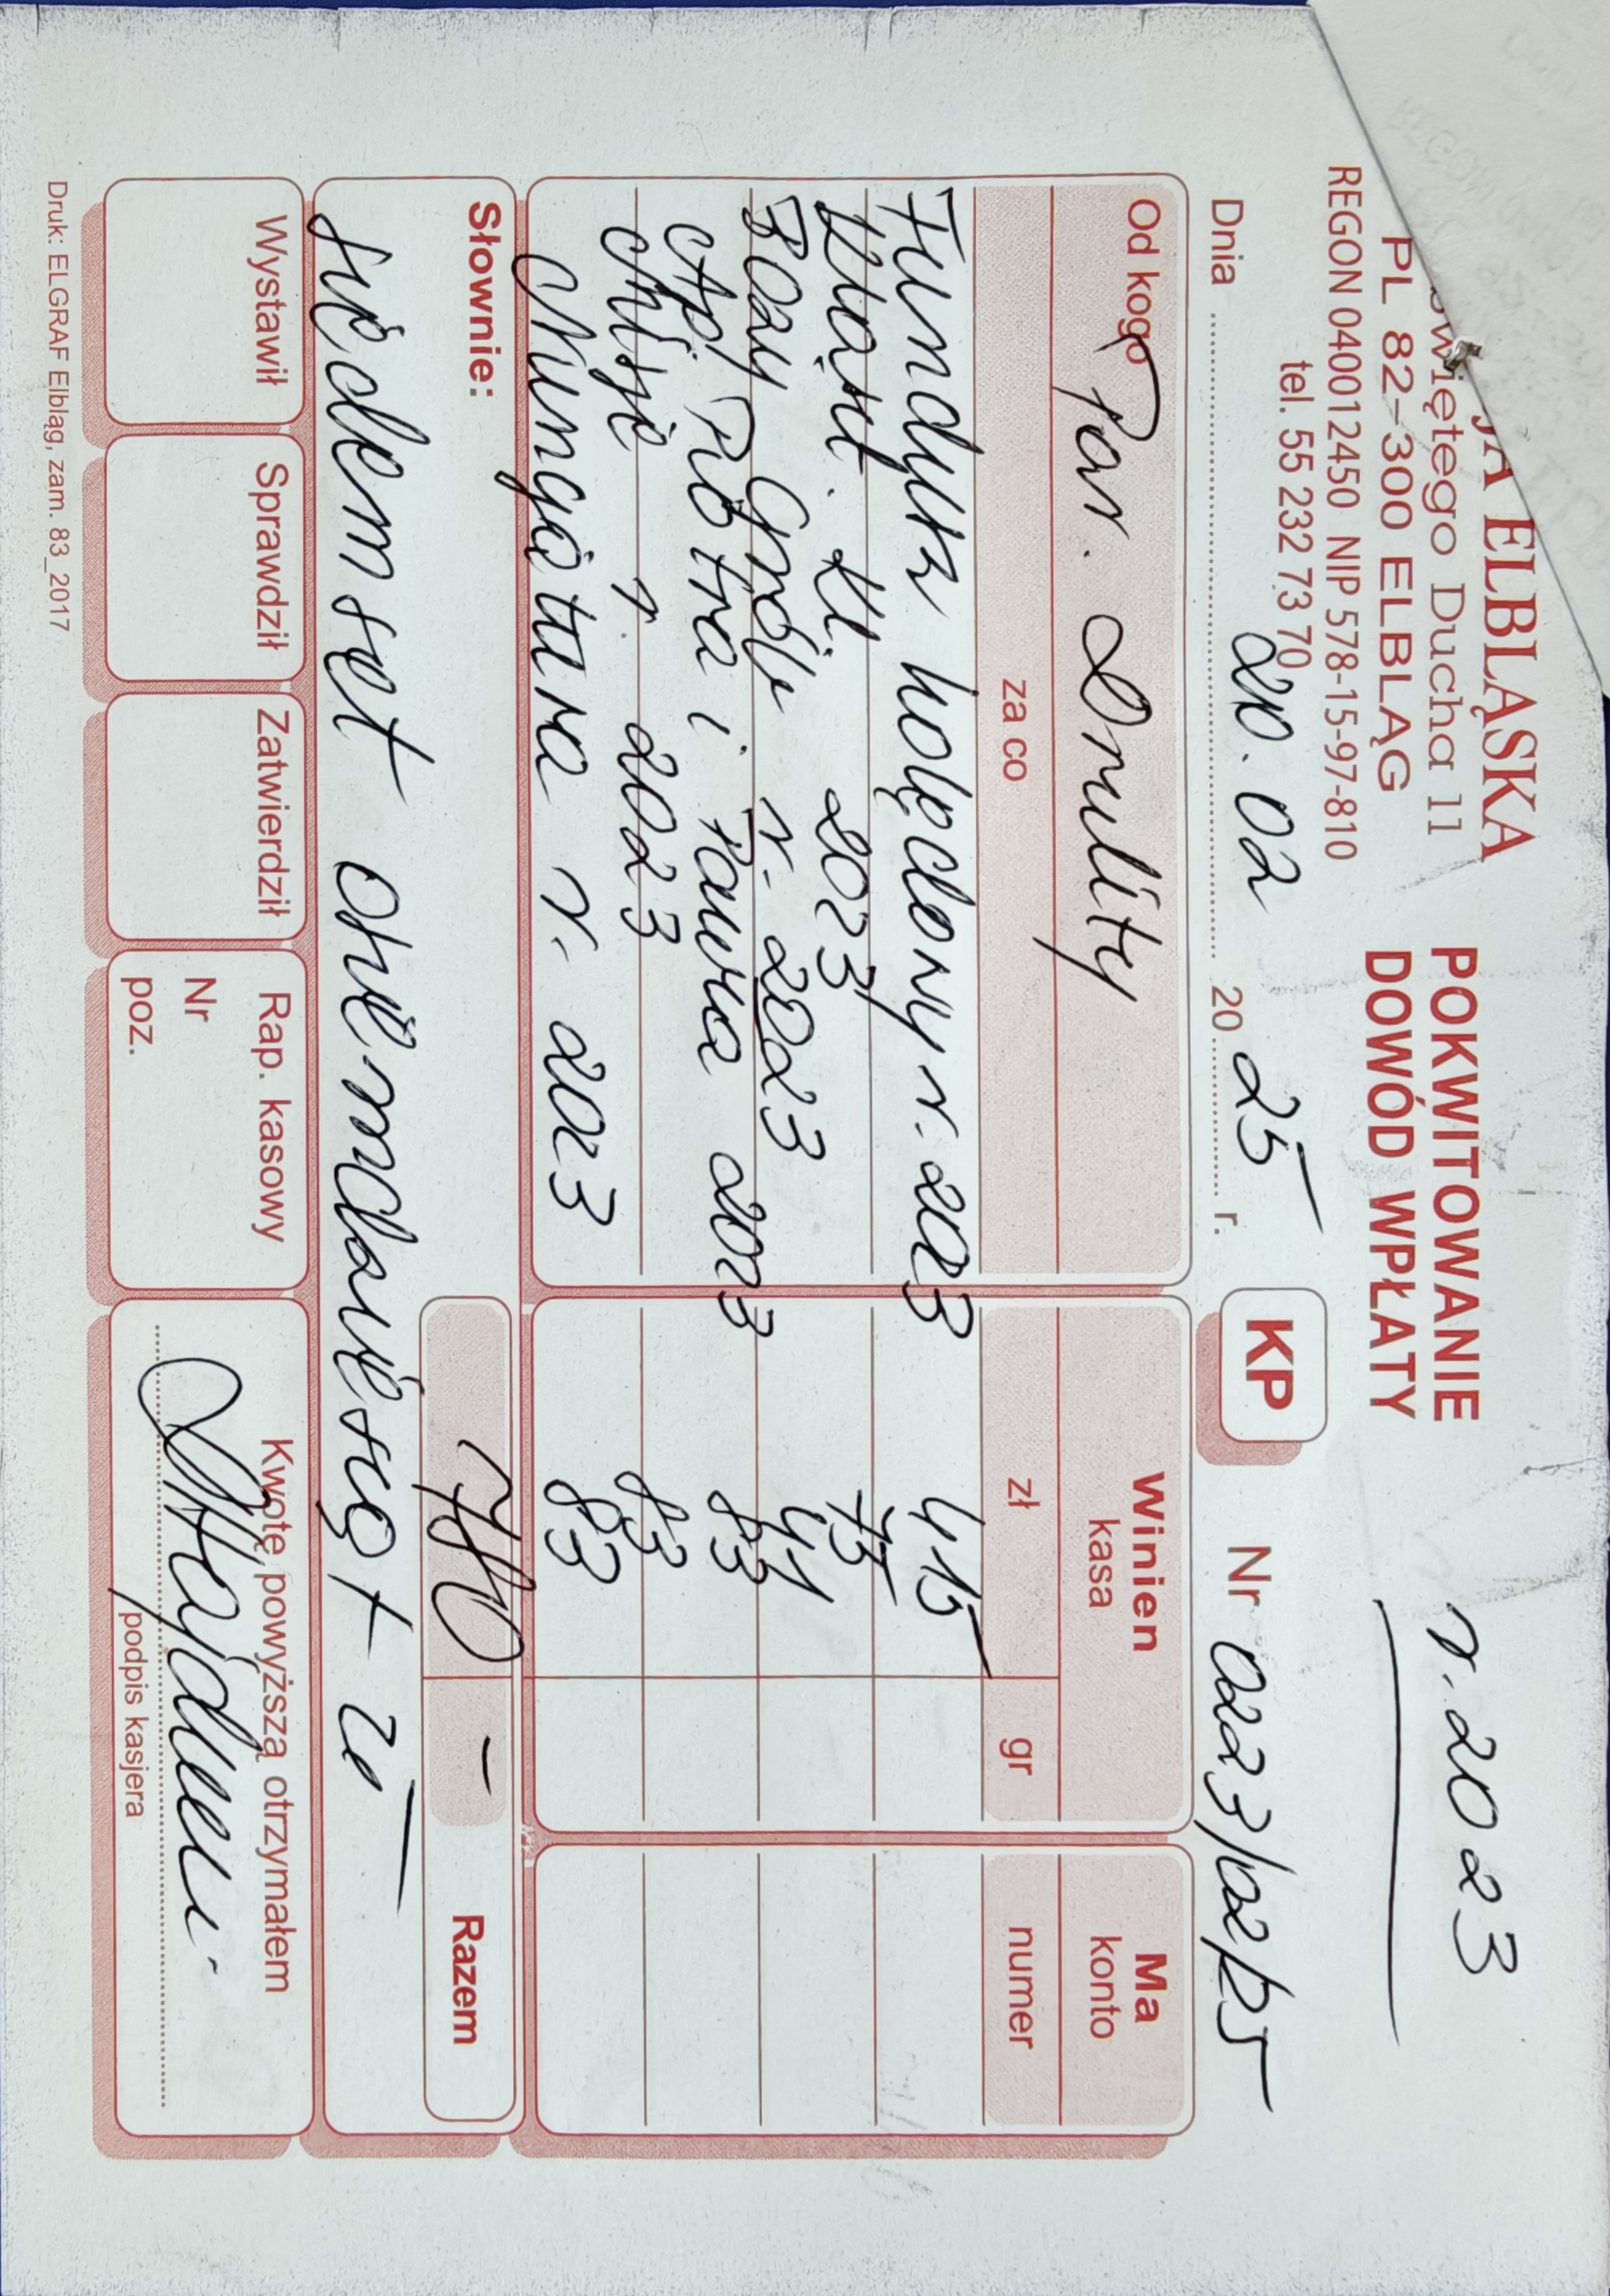 JA ELBLĄSKA
Świętego Ducha 11
PL 82-300 ELBLĄG
REGON 040012450 NIP 578-15-97-810
tel. 55 232 73 70
POKWITOWANIE
DOWÓD WPŁATY
r. 2023
Dnia 20.02 2025 r.
KP
Nr 0223/02/25
Od kogo Par. Drulity
Winien
kasa
Ma
konto
za co
zł
gr
numer
Fundusz kolędowy r. 2023 415
Kwart. kl. 2023 75
Boży Grób r. 2023 41
Ap. Piotra i Pawła 2023 83
Misje r. 2023 83
Nuncjatura r. 2023 83
780 -
Razem
Słownie:
siedemset osiemdziesiąt zł
Wystawił
Sprawdził
Zatwierdził
Rap. kasowy
Nr
poz.
Kwotę powyższą otrzymałem
podpis kasjera
Druk: ELGRAF Elbląg, zam. 83_2017